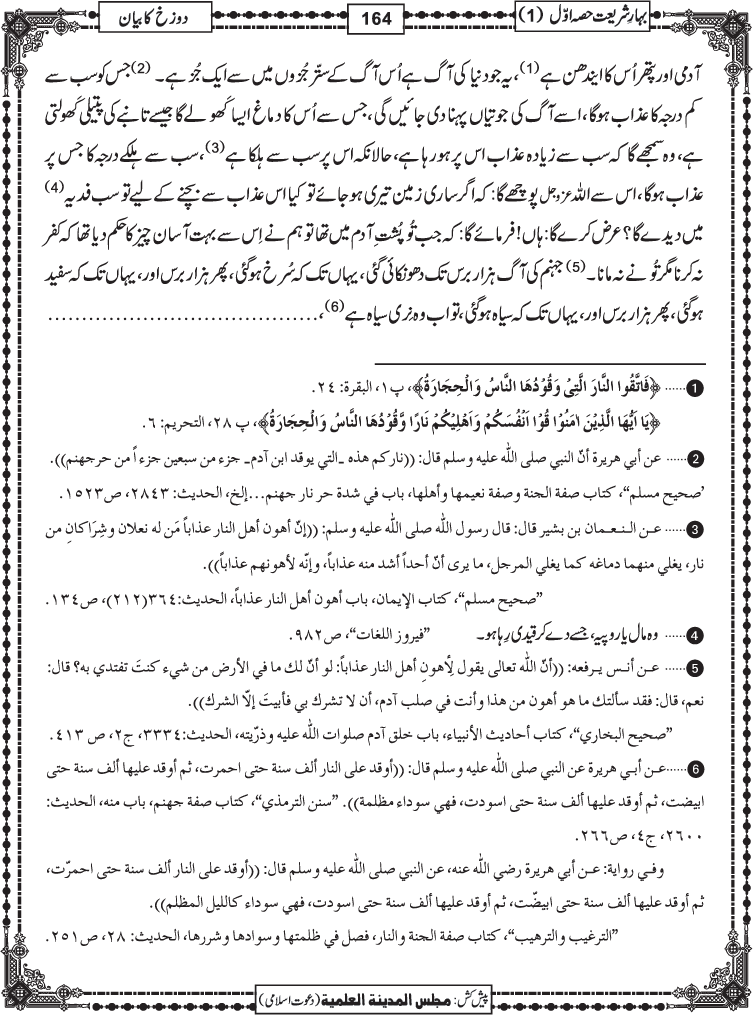 بہارِشریعت حصہ اوّل (1)
164
دوزخ کا بیان
آدمی اور پتھر اُس کا ایندھن ہے (1)، یہ جو دنیا کی آگ ہے اُس آگ کے ستّر جُزوں میں سے ایک جُز ہے۔ (2) جس کو سب سے
کم درجہ کا عذاب ہوگا، اسے آگ کی جوتیاں پہنا دی جائیں گی، جس سے اُس کا دماغ ایسا کَھولے گا جیسے تانبے کی پتیلی کَھولتی
ہے، وہ سمجھے گا کہ سب سے زیادہ عذاب اس پر ہو رہا ہے، حالانکہ اس پر سب سے ہلکا ہے (3)، سب سے ہلکے درجہ کا جس پر
عذاب ہوگا، اس سے اللہ عزوجل پوچھے گا: کہ اگر ساری زمین تیری ہو جائے تو کیا اس عذاب سے بچنے کے لیے تو سب فدیہ (4)
میں دیدے گا؟ عرض کرے گا: ہاں! فرمائے گا: کہ جب تُو پشتِ آدم میں تھا تو ہم نے اِس سے بہت آسان چیز کا حکم دیا تھا کہ کفر
نہ کرنا مگر تُو نے نہ مانا۔ (5) جہنم کی آگ ہزار برس تک دھونکائی گئی، یہاں تک کہ سُرخ ہوگئی، پھر ہزار برس اور، یہاں تک کہ سفید
ہوگئی، پھر ہزار برس اور، یہاں تک کہ سیاہ ہوگئی، تو اب وہ نِری سیاہ ہے (6)، .......................................
1 ...... ﴿فَاتَّقُوا النَّارَ الَّتِیْ وَقُوْدُهَا النَّاسُ وَالْحِجَارَةُ﴾، پ۱، البقرة: ۲٤.
﴿یَا اَیُّهَا الَّذِیْنَ اٰمَنُوْا قُوْا اَنْفُسَكُمْ وَاَهْلِیْكُمْ نَارًا وَّقُوْدُهَا النَّاسُ وَالْحِجَارَةُ﴾، پ ۲۸، التحریم: ٦.
2 ...... عن أبي هريرة أنّ النبي صلى الله عليه وسلم قال: ((ناركم هذه ـ التي يوقد ابن آدم ـ جزء من سبعين جزءاً من حرجهنم)).
’صحيح مسلم“، كتاب صفة الجنة وصفة نعيمها وأهلها، باب في شدة حر نار جهنم...إلخ، الحديث: ۲۸٤۳، ص۱٥۲۳.
3 ...... عـن النـعـمان بن بشير قال: قال رسول الله صلى الله عليه وسلم: ((إنّ أهون أهل النار عذاباً مَن له نعلان وشِرَاكانِ من
نار، يغلي منهما دماغه كما يغلي المرجل، ما يرى أنّ أحداً أشد منه عذاباً، وإنّه لأهونهم عذاباً)).
”صحيح مسلم“، كتاب الإيمان، باب أهون أهل النار عذاباً، الحديث:۳٦٤(۲۱۲)، ص۱۳٤.
4 ...... وہ مال یا روپیہ، جسے دے کر قیدی رِہا ہو۔ ”فیروز اللغات“، ص۹۸۲.
5 ...... عـن أنـس يـرفعه: ((أنّ الله تعالى يقول لِأهونِ أهل النار عذاباً: لو أنّ لك ما في الأرض من شيء كنتَ تفتدي به؟ قال:
نعم، قال: فقد سألتك ما هو أهون من هذا وأنت في صلب آدم، أن لا تشرك بي فأبيتَ إلّا الشرك)).
”صحيح البخاري“، كتاب أحاديث الأنبياء، باب خلق آدم صلوات الله عليه وذرّيته، الحديث:۳۳۳٤، ج۲، ص ٤۱۳.
6 ......عـن أبـي هريرة عن النبي صلى الله عليه وسلم قال: ((أوقد على النار ألف سنة حتى احمرت، ثم أوقد عليها ألف سنة حتى
ابيضت، ثم أوقد عليها ألف سنة حتى اسودت، فهي سوداء مظلمة)). ”سنن الترمذي“، كتاب صفة جهنم، باب منه، الحديث:
۲٦۰۰، ج٤، ص۲٦٦.
وفـي رواية: عـن أبي هريرة رضي الله عنه، عن النبي صلى الله عليه وسلم قال: ((أوقد على النار ألف سنة حتى احمرّت،
ثم أوقد عليها ألف سنة حتى ابيضّت، ثم أوقد عليها ألف سنة حتى اسودت، فهي سوداء كالليل المظلم)).
”الترغيب والترهيب“، كتاب صفة الجنة والنار، فصل في ظلمتها وسوادها وشررها، الحديث: ۲۸، ص۲٥۱.
پیش کش: مجلس المدینة العلمیة (دعوت اسلامی)